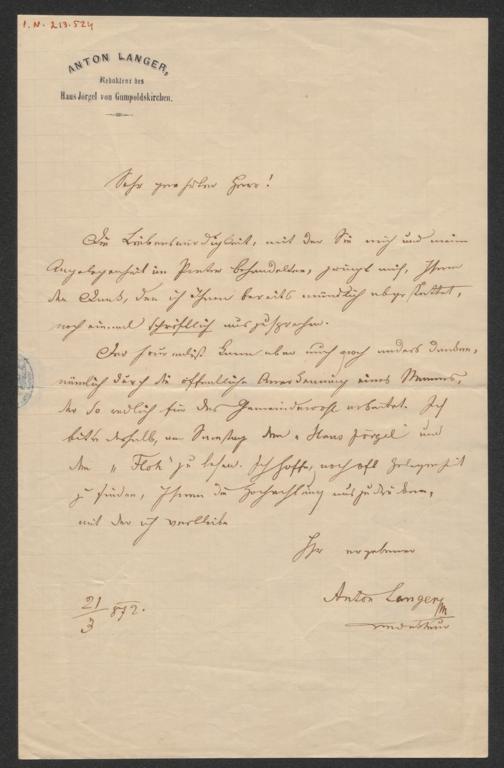 I.N. 213.524
ANTON LANGER,
Redakteur des
Hans Jörgel von Gumpoldskirchen.
Sehr geehrter Herr!
Die Liebenswürdigkeit, mit der Sie mich und meine
Angelegenheit im Prater behandelten, zwingt mich, Ihnen
den Dank, den ich Ihnen bereits mündlich abgestattet,
noch einmal schriftlich auszusprechen.
Der Journalist kann aber auch noch anders danken,
nämlich durch die öffentliche Anerkennung eines Mannes,
der so redlich für das Gemeindewohl arbeitet. Ich
bitte deshalb, am Samstag den „Hans Jörgel" und
den „Floh" zu lesen. Ich hoffe, noch oft Gelegenheit
zu finden, Ihnen die Hochachtung auszudrücken,
mit der ich verbleibe
Ihr ergebener
Anton Langer
Redakteur
21/3 872.